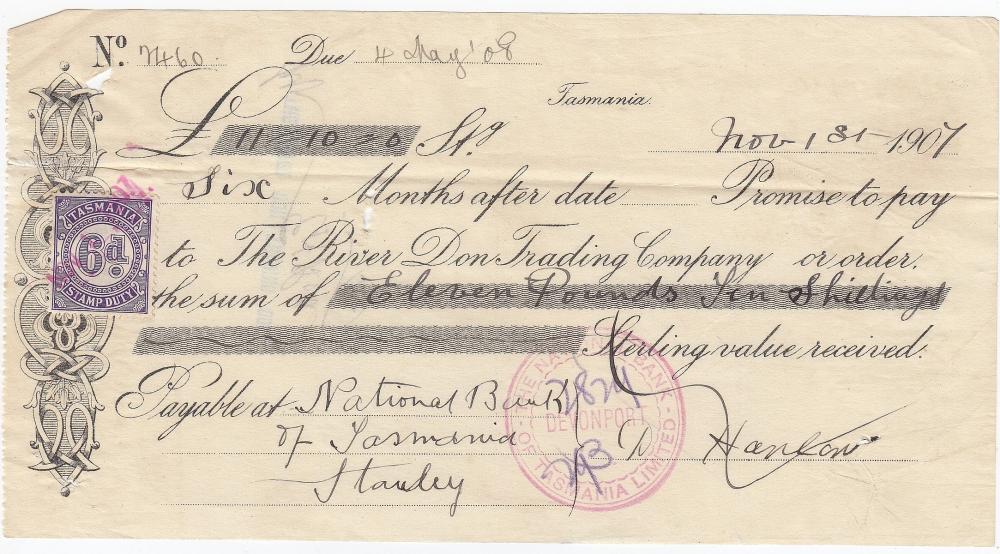 No. 7460. Due 4 May '08
Tasmania.
£ 11-10-0 Stg Nov 1st 1907
Six Months after date Promise to pay
to The River Don Trading Company or order.
the sum of Eleven Pounds Ten Shillings
Sterling value received.
Payable at National Bank
of Tasmania
Stanley
TASMANIA
6d.
STAMP DUTY
THE NATIONAL BANK
DEVONPORT
OF TASMANIA LIMITED